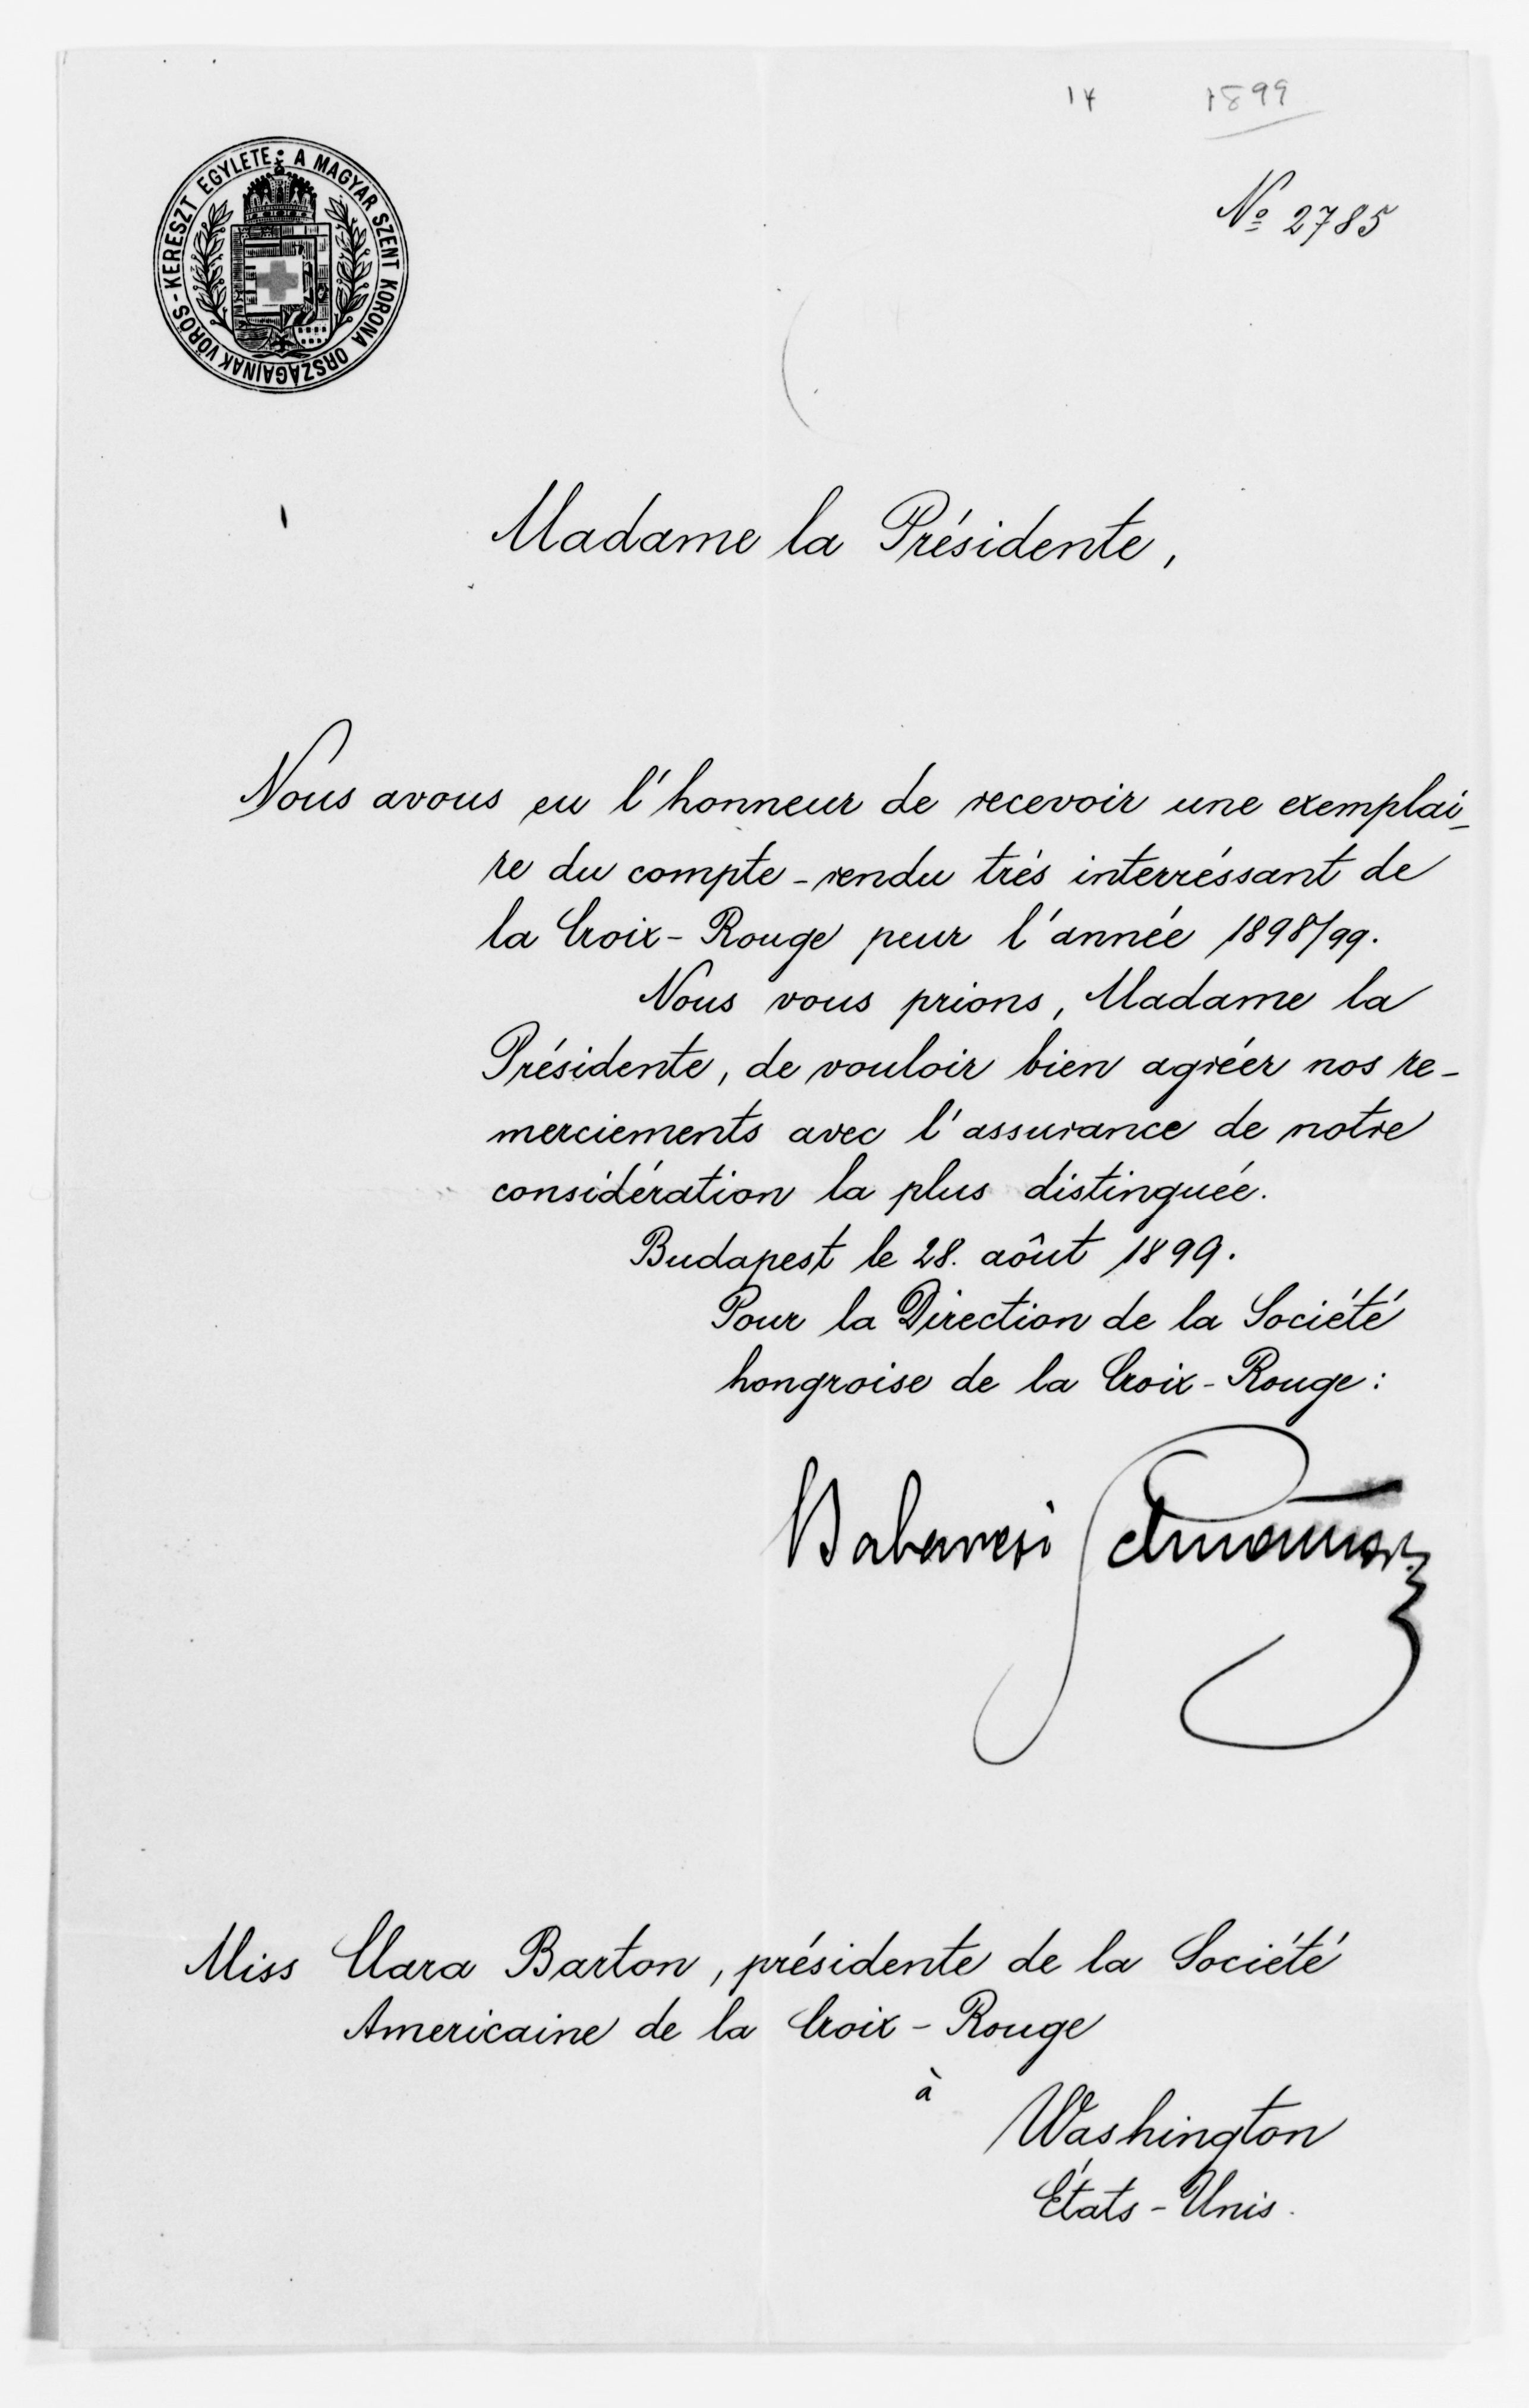 14 1899
A MAGYAR SZENT KORONA ORSZÁGAINAK VÖRÖS-KERESZT EGYLETE
Nº 2785
Madame la Présidente,
Nous avous eu l'honneur de recevoir une exemplai-
re du compte-rendu trés interréssant de
la Croix-Rouge peur l'année 1898/99.
Nous vous prions, Madame la
Présidente, de vouloir bien agréer nos re-
merciements avec l'assurance de notre
considération la plus distinguée.
Budapest le 28. aôut 1899.
Pour la Direction de la Société
hongroise de la Croix-Rouge:
Miss Clara Barton, présidente de la Société
Americaine de la Croix-Rouge
à
Washington
États-Unis.